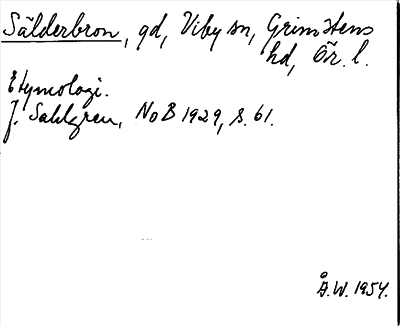 Sälderbron, gd, Viby sn, Grimstens
hd, Ör. l.
Etymologi.
J. Sahlgren, NoB 1929, s. 61.
Å.W. 1954.